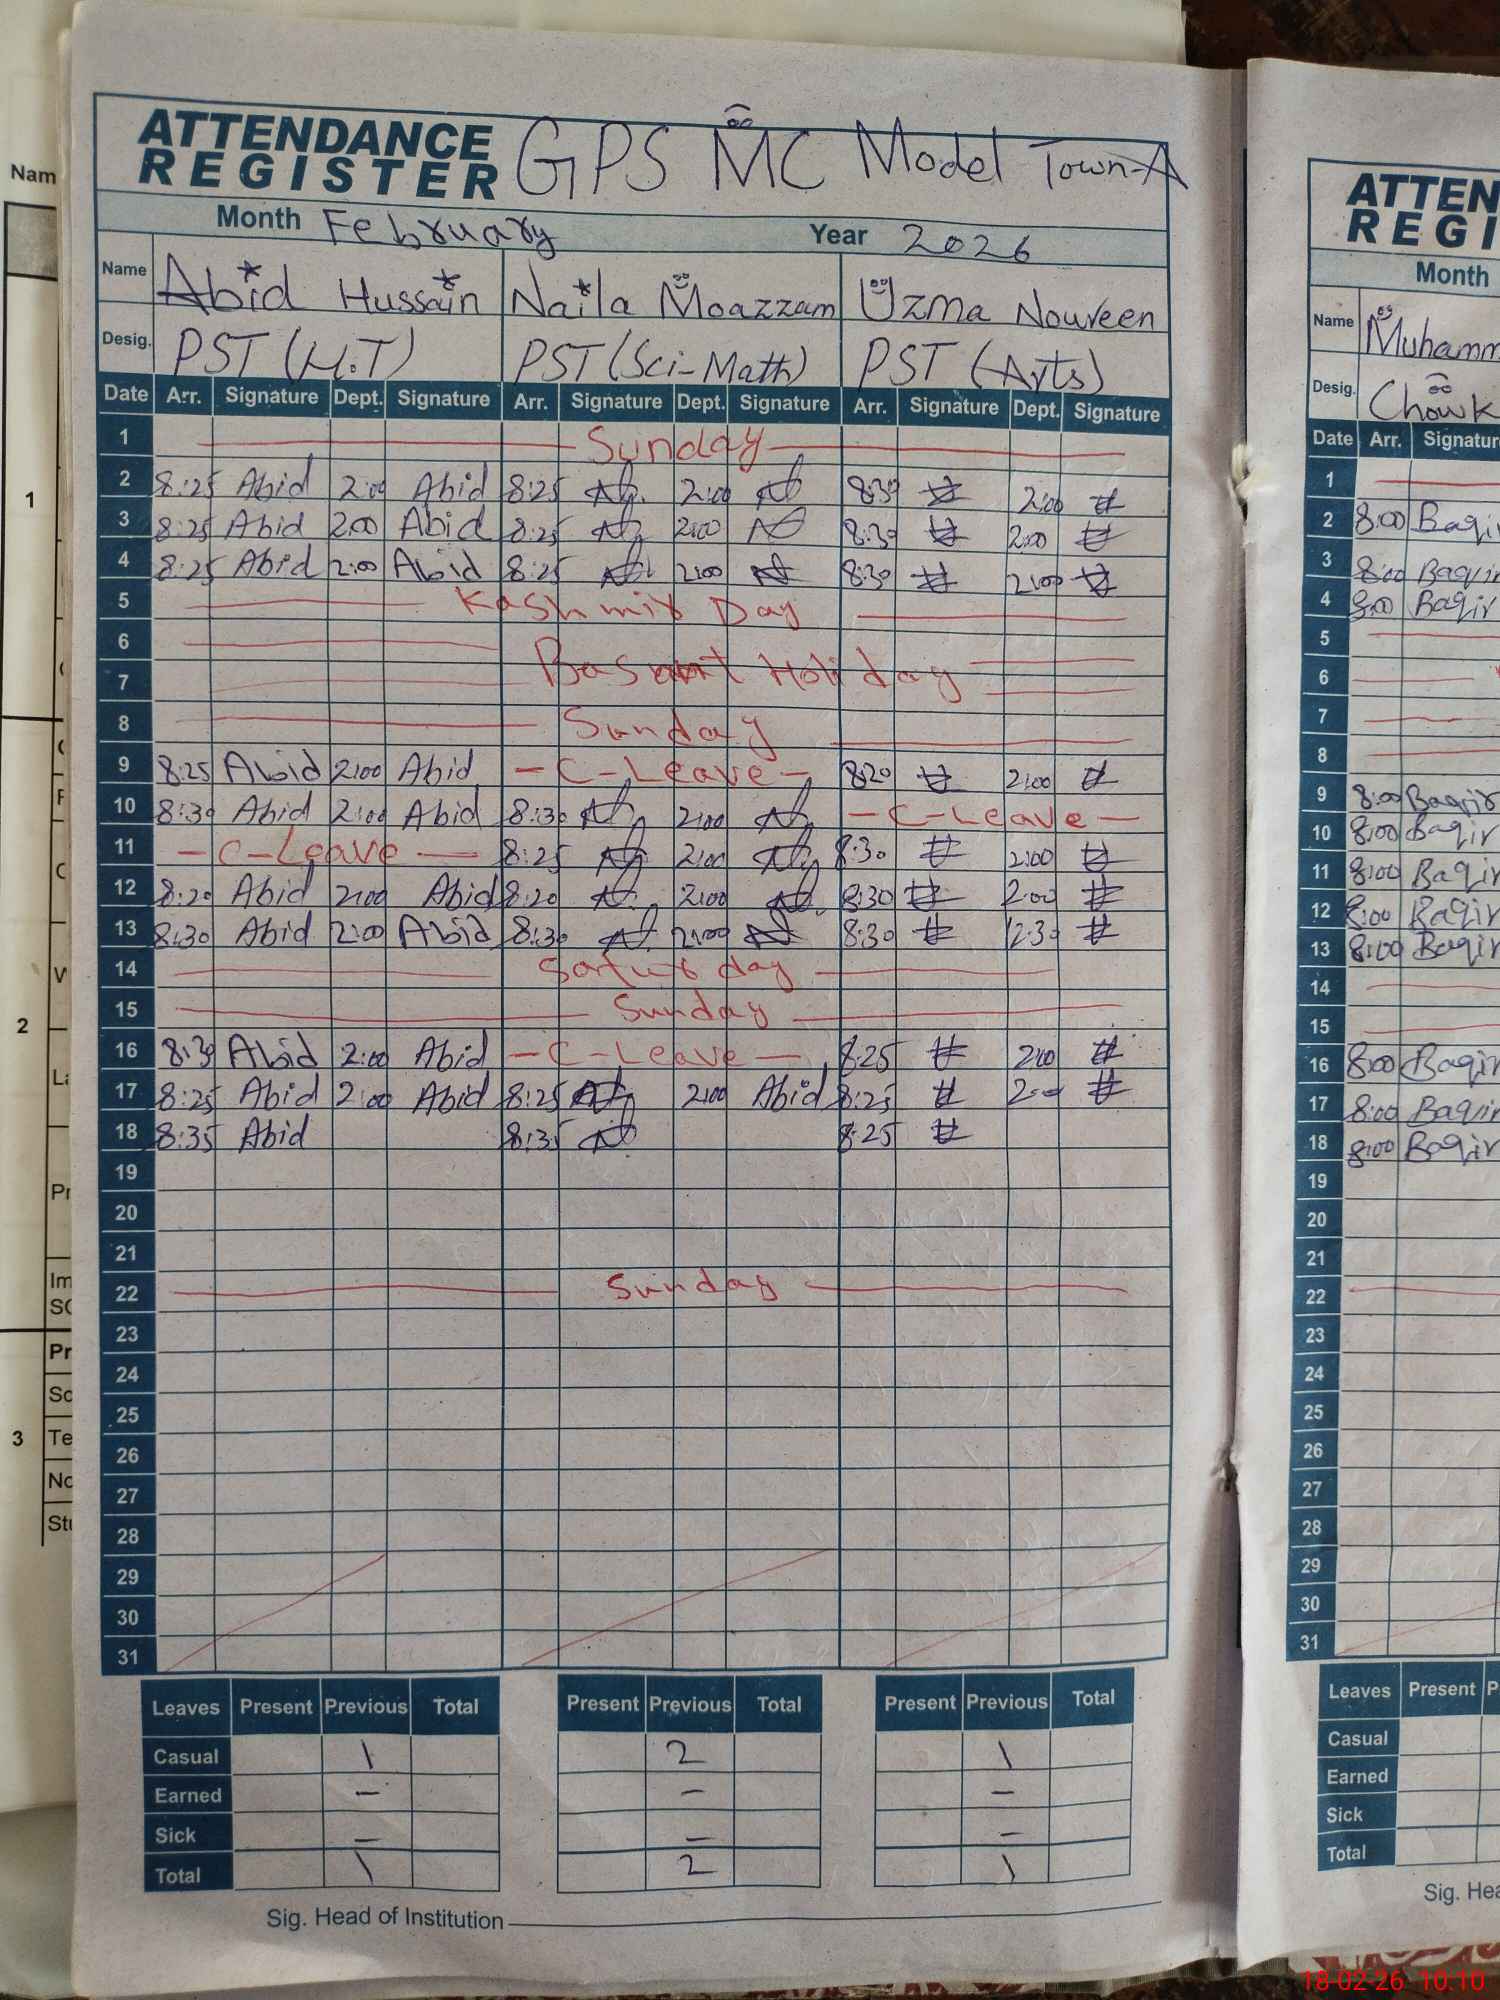 ATTENDANCE REGISTER GPS MC Model Town-A
Month February Year 2026
Name Abid Hussain Naila Moazzam Uzma Noureen
Desig. PST (H.T) PST (Sci-Math) PST (Arts)
Date Arr. Signature Dept. Signature Arr. Signature Dept. Signature Arr. Signature Dept. Signature
1 Sunday
2 8:25 Abid 2:00 Abid 8:25 2:00 8:30 2:00
3 8:25 Abid 2:00 Abid 8:25 2:00 8:30 2:00
4 8:25 Abid 2:00 Abid 8:25 2:00 8:30 2:00
5 Kashmir Day
6
7 Basant Holiday
8 Sunday
9 8:25 Abid 2:00 Abid - C-Leave - 8:20 2:00
10 8:30 Abid 2:00 Abid 8:30 2:00 - C-Leave -
11 - C-Leave - 8:25 2:00 8:30 2:00
12 8:20 Abid 2:00 Abid 8:20 2:00 8:30 2:00
13 8:30 Abid 2:00 Abid 8:30 2:00 8:30 12:30
14 Saturday
15 Sunday
16 8:30 Abid 2:00 Abid - C-Leave - 8:25 2:00
17 8:25 Abid 2:00 Abid 8:25 2:00 Abid 8:25 2:00
18 8:35 Abid 8:35 8:25
19
20
21
22 Sunday
23
24
25
26
27
28
29
30
31
Leaves Present Previous Total Present Previous Total Present Previous Total
Casual 1 2 1
Earned - - -
Sick - - -
Total 1 2 1
Sig. Head of Institution
ATTEN
REGI
Month
Name Muhamm
Desig. Chowk
Date Arr. Signatur
1
2 8:00 Baqir
3 8:00 Baqir
4 8:00 Baqir
5
6
7
8
9 8:00 Baqir
10 8:00 Baqir
11 8:00 Baqir
12 8:00 Baqir
13 8:00 Baqir
14
15
16 8:00 Baqir
17 8:00 Baqir
18 8:00 Baqir
19
20
21
22
23
24
25
26
27
28
29
30
31
Leaves Present P
Casual
Earned
Sick
Total
Sig. Hea
Nam
1
2
3
Pr
Im
SC
Pr
Sc
Te
No
Stu
18-02-26 10:10